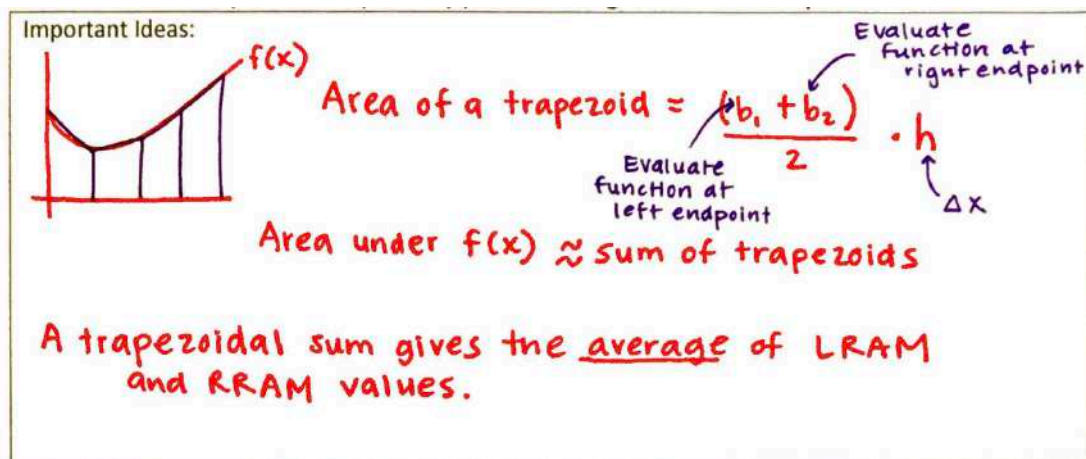 Important Ideas:
f(x)
Area of a trapezoid = (b₁ + b₂) / 2 · h
Evaluate
function at
right endpoint
Evaluate
function at
left endpoint
Δx
Area under f(x) ≈ sum of trapezoids
A trapezoidal sum gives the average of LRAM
and RRAM values.